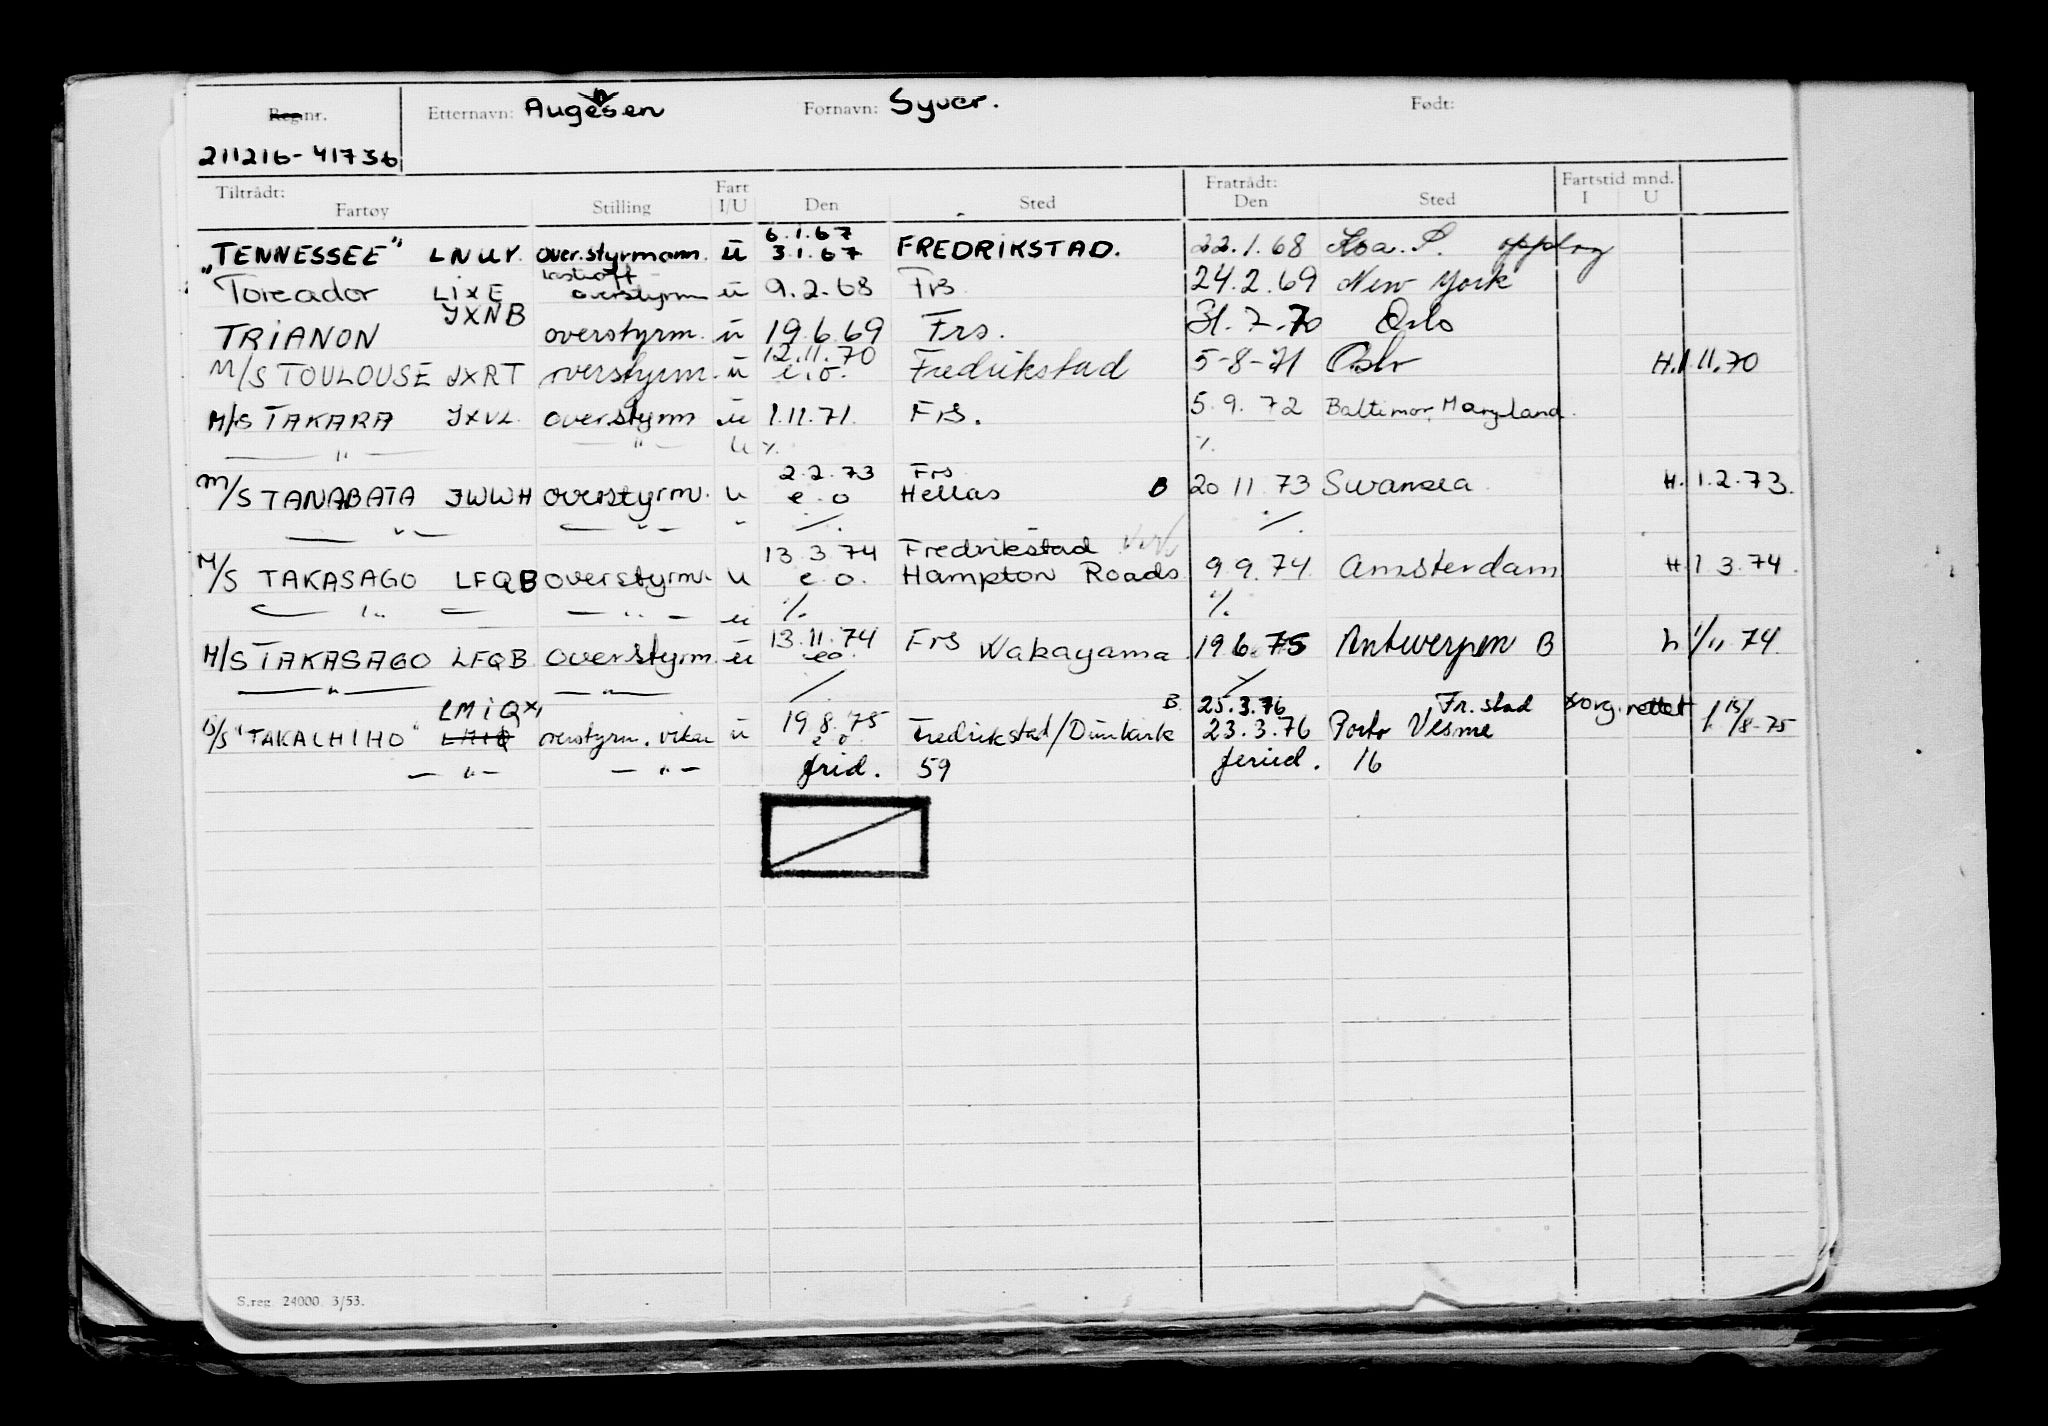 Reg.nr. Etternavn: Augensen Fornavn: Syver. Født:
211216-41736
Tiltrådt: Fart Fratrådt: Fartstid mnd.
Fartøy Stilling I/U Den Sted Den Sted I U
6.1.67
"TENNESSEE" LNUY. overstyrmann. ū 3.1.67 FREDRIKSTAD. 22.1.68 opplag
Toreador LIXE overstyrm ū 9.2.68 Frs 24.2.69 New York
TRIANON JXNB overstyrm. ū 19.6.69 Frs. 31.7.70 Oslo
12.11.70
M/S TOULOUSE JXRT overstyrm. ū e.o. Fredrikstad 5-8-71 Oslo H. 1.11.70
M/S TAKARA JXVL overstyrm ū 1.11.71. Frs. 5.9.72 Baltimor, Maryland.
— " — — " — u %. %
2.2.73 Frs
M/S TANABATA JWWH overstyrm. u e.o Hellas B 20.11.73 Swansea H. 1.2.73.
— " — — " — " %. %.
13.3.74 Fredrikstad
M/S TAKASAGO LFQB overstyrm. u e.o. Hampton Roads 9.9.74. Amsterdam H. 1.3.74.
— " — — " — ū %. %.
13.11.74 Frs
M/S TAKASAGO LFQB overstyrm. ū eo. Wakayama 19.6.75 Antwerpen B h 1/11 74.
— " — — " — % %
LMIQ x, B. 25.3.76 Fr.stad xorg.rettet
D/S "TAKACHIHO" LMIQ overstyrm. vikar ū 19.8.75 e.o. Fredrikstad/Dünkirk 23.3.76 Porto Vesme h 15/8-75
— " — — " — frid. 59 feriid. 16
S.reg. 24000. 3/53.